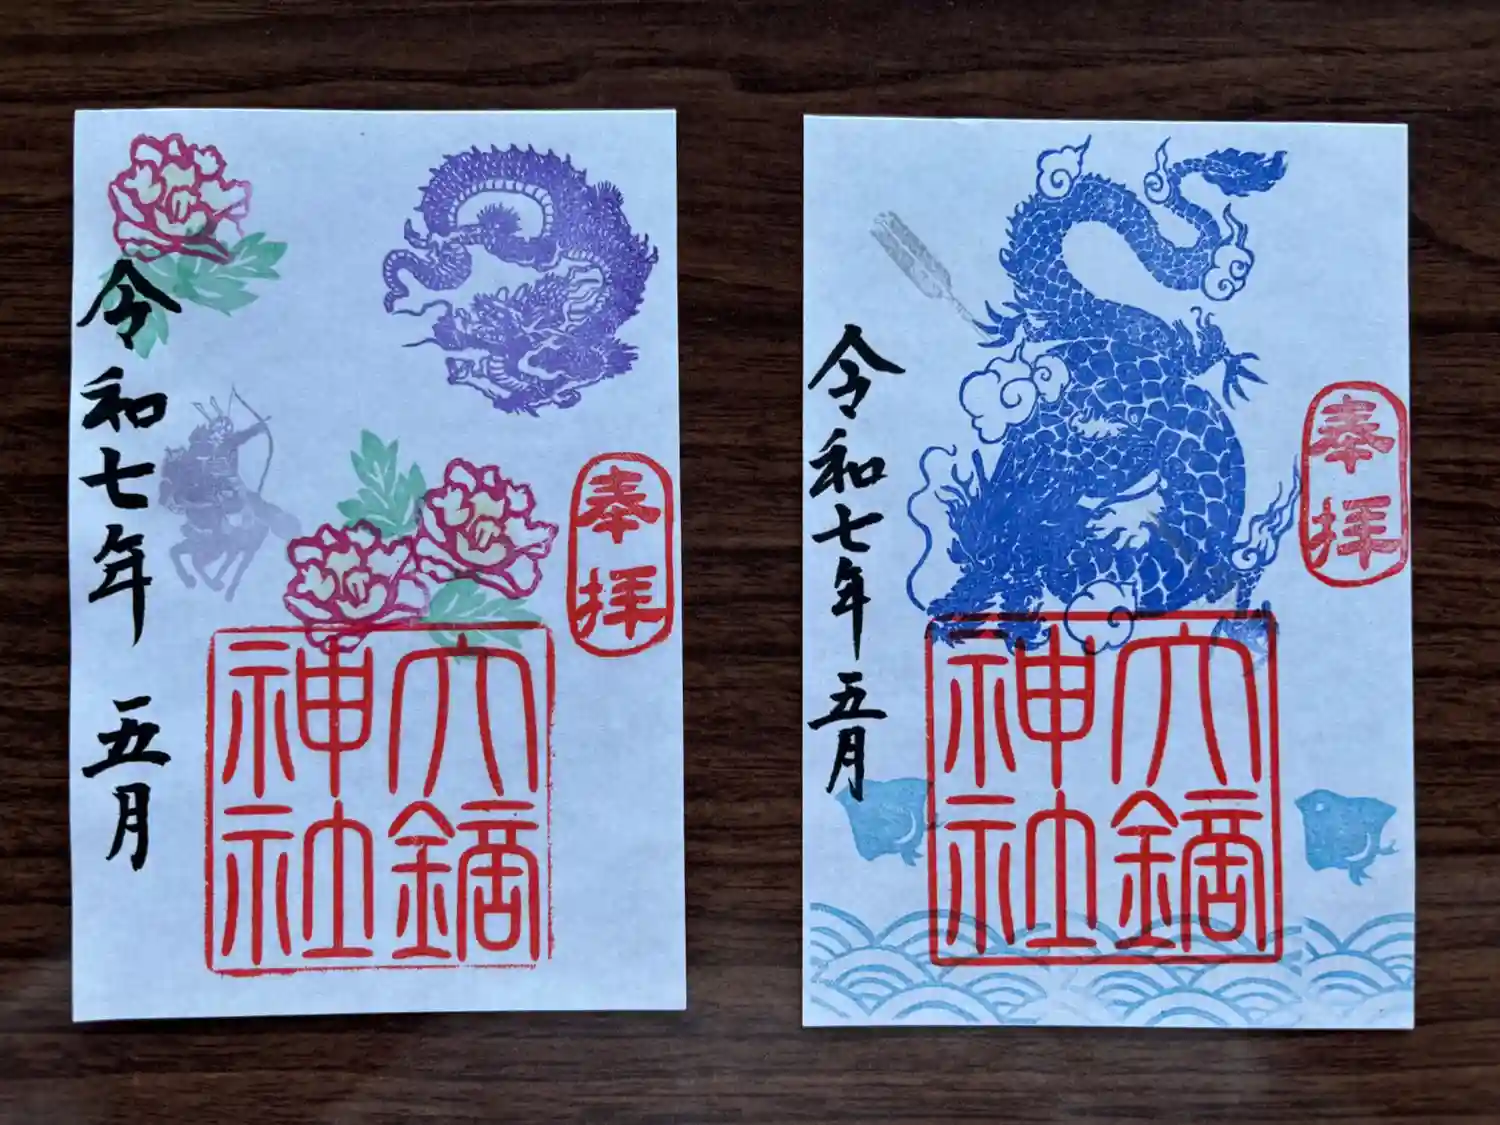 令和七年 五月
奉拝
大鏑神社
令和七年 五月
奉拝
大鏑神社